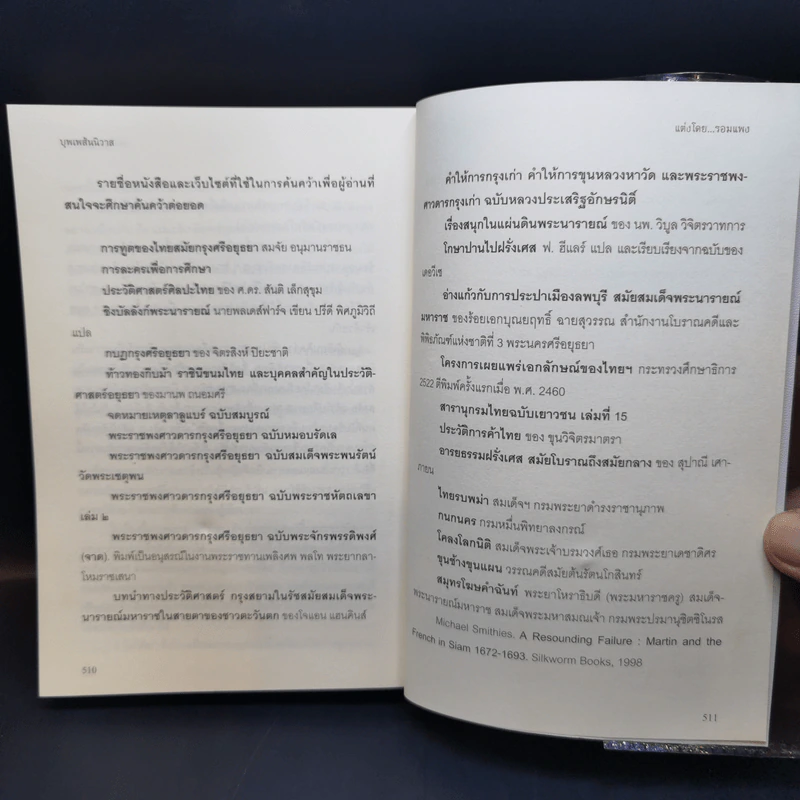 บุพเพสันนิวาส
รายชื่อหนังสือและเว็บไซต์ที่ใช้ในการค้นคว้าเพื่อผู้อ่านที่
สนใจจะศึกษาค้นคว้าต่อยอด
การทูตของไทยสมัยกรุงศรีอยุธยา สมจัย อนุมานราชธน
การละครเพื่อการศึกษา
ประวัติศาสตร์ศิลปะไทย ของ ศ.ดร. สันติ เล็กสุขุม
ชิงบัลลังก์พระนารายณ์ นายพลเดส์ฟาร์จ เขียน ปรีดี พิศภูมิวิถี
แปล
กบฏกรุงศรีอยุธยา ของ จิตรสิงห์ ปิยะชาติ
ท้าวทองกีบม้า ราชินีขนมไทย และบุคคลสำคัญในประวัติ-
ศาสตร์อยุธยา ของมานพ ถนอมศรี
จดหมายเหตุลาลูแบร์ ฉบับสมบูรณ์
พระราชพงศาวดารกรุงศรีอยุธยา ฉบับหมอบรัดเล
พระราชพงศาวดารกรุงศรีอยุธยา ฉบับสมเด็จพระพนรัตน์
วัดพระเชตุพน
พระราชพงศาวดารกรุงศรีอยุธยา ฉบับพระราชหัตถเลขา
เล่ม ๒
พระราชพงศาวดารกรุงศรีอยุธยา ฉบับพระจักรพรรดิพงศ์
(จาด). พิมพ์เป็นอนุสรณ์ในงานพระราชทานเพลิงศพ พลโท พระยากลา-
โหมราชเสนา
บทนำทางประวัติศาสตร์ กรุงสยามในรัชสมัยสมเด็จพระ-
นารายณ์มหาราชในสายตาของชาวตะวันตก ของโจแอน แฮนคินส์
510
แต่งโดย...รอมแพง
คำให้การกรุงเก่า คำให้การขุนหลวงหาวัด และพระราชพง-
ศาวดารกรุงเก่า ฉบับหลวงประเสริฐอักษรนิติ์
เรื่องสนุกในแผ่นดินพระนารายณ์ ของ นพ. วิบูล วิจิตรวาทการ
โกษาปานไปฝรั่งเศส ฟ. ฮีแลร์ แปล และเรียบเรียงจากฉบับของ
เดอวีเซ
อ่างแก้วกับการประปาเมืองลพบุรี สมัยสมเด็จพระนารายณ์
มหาราช ของร้อยเอกบุณยฤทธิ์ ฉายสุวรรณ สำนักงานโบราณคดีและ
พิพิธภัณฑ์แห่งชาติที่ 3 พระนครศรีอยุธยา
โครงการเผยแพร่เอกลักษณ์ของไทยฯ กระทรวงศึกษาธิการ
2522 ตีพิมพ์ครั้งแรกเมื่อ พ.ศ. 2460
สารานุกรมไทยฉบับเยาวชน เล่มที่ 15
ประวัติการค้าไทย ของ ขุนวิจิตรมาตรา
อารยธรรมฝรั่งเศส สมัยโบราณถึงสมัยกลาง ของ สุปาณี เศา-
ภายน
ไทยรบพม่า สมเด็จฯ กรมพระยาดำรงราชานุภาพ
กนกนคร กรมหมื่นพิทยาลงกรณ์
โคลงโลกนิติ สมเด็จพระเจ้าบรมวงศ์เธอ กรมพระยาเดชาดิศร
ขุนช้างขุนแผน วรรณคดีสมัยต้นรัตนโกสินทร์
สมุทรโฆษคำฉันท์ พระยาโหราธิบดี (พระมหาราชครู) สมเด็จ-
พระนารายณ์มหาราช สมเด็จพระมหาสมณเจ้า กรมพระปรมานุชิตชิโนรส
Michael Smithies. A Resounding Failure : Martin and the
French in Siam 1672-1693. Silkworm Books, 1998
511